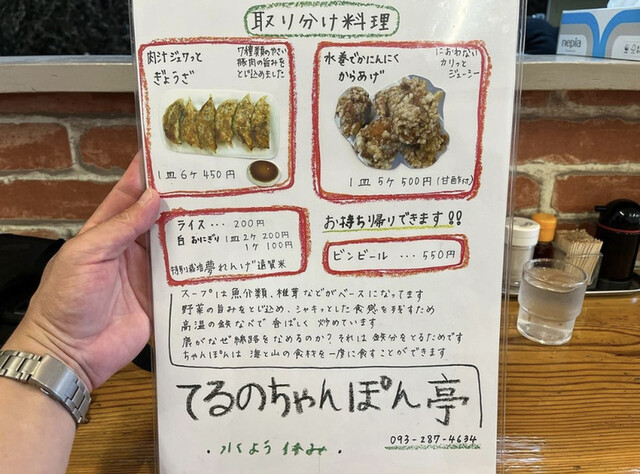 取り分け料理
肉汁ジュワっと
ぎょうざ
7種類のやさい
豚肉の旨みを
とじ込めました
1皿6ケ 450円
水巻でかにんにく
からあげ
におわない
カリっと
ジューシー
1皿 5ケ 500円(甘酢付)
ライス・・・200円
白おにぎり 1皿2ケ 200円
1ケ 100円
特別栽培 夢れんげ 遠賀米
お持ち帰りできます!!
ビンビール・・・・550円
スープは魚介類、椎茸などがベースになってます
野菜の旨みをとじ込め、シャキッとした食感を残すため
高温の鉄なべで香ばしく 炒めています
鹿がなぜ線路をなめるのか?それは鉄分をとるためです
ちゃんぽんは 海と山の食材を一度に食すことができます
てるのちゃんぽん亭
・水よう休み・
093-287-4634
nepia